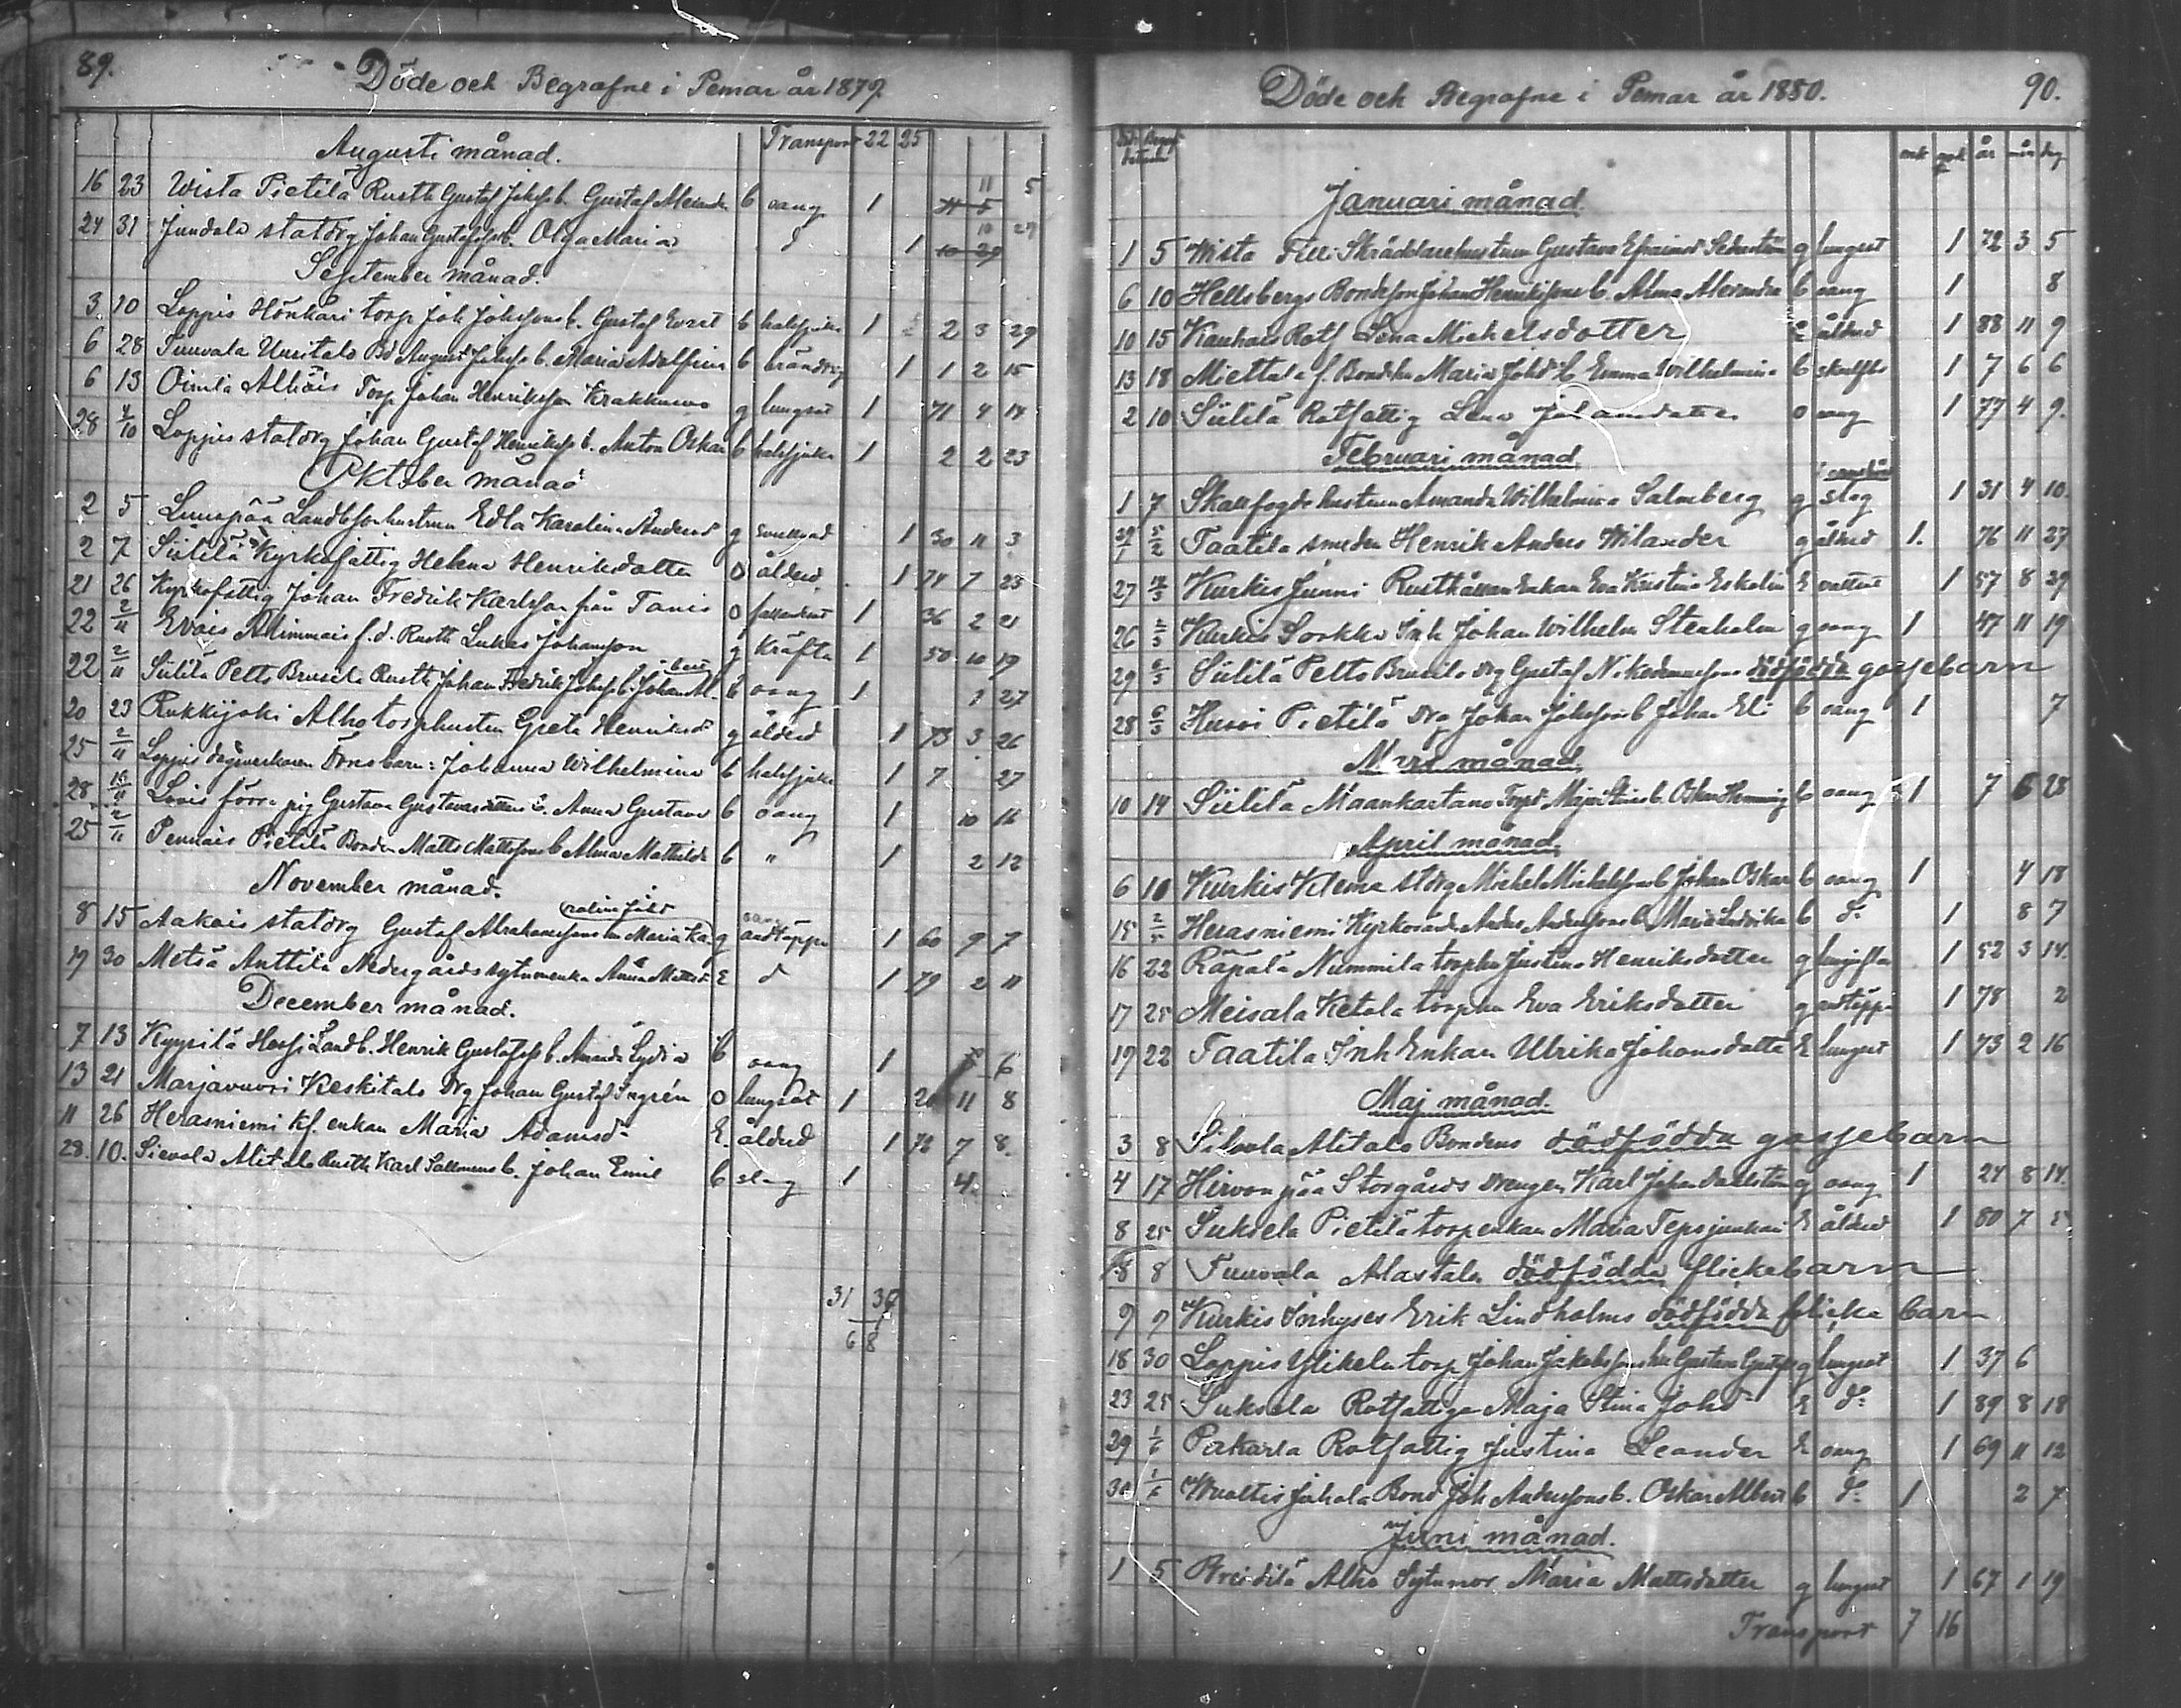 89.
Döde och Begrafne i Pemar år 1879.
Transport 22 25
Augusti månad.
16 23 Wista Pietilä Rusth Gustaf Johss b. Gustaf Alexander b oang 1 11 5
24 31 Jundala statdrg Johan Gustafss b. Olga Maria d 1 10 29
September månad.
3 10 Loppis Hönkäri torp Joh Johssons b. Gustaf Evert b halssjuka 1 2 3 29
6 28 Tuuvala Uusitalo Bd August Johss b. Maria Adolfina b 1 1 2 15
6 13 Oinila Alhäis Torp Johan Henriksson Krakkunas g lungsot 1 71 4 14
28 4/10 Loppis statdrg Johan Gustaf Henrikss b. Anton Oskar b halssjuka 1 2 2 23
Oktober månad
2 5 Luuspää Landtbshustrun Edla Karolina Andersd g 1 30 11 3
2 7 Siililä Kyrkofattig Helena Henriksdotter o ålderd 1 74 7 23
21 26 Kyrkofattig Johan Fredrik Karlsson från Tanis o fallandesot 1 36 2 21
22 2/11 Evais Alimmais f.d. Rusth Lukas Johansson g kräfta 1 50 10 19
22 2/11 Siililä Petts Brusila Rusth Johan Fredrik Johss b. Johan Al. b oang 1 1 27
20 23 Rukkijoki Alho torphustru Greta Henriksd g ålderd 1 73 3 26
25 2/11 Loppis dagsverkaren barn: Johanna Wilhelmina b halssjuka 1 7 27
28 16/11 Lovis förra pig Gustava Gustavasdotters b. Anna Gustava b oang 1 10 16
25 2/11 Pennais Pietilä Bonden Matts Mattssons b Alma Mathilda b " 1 2 12
November månad.
8 15 Aakois statdrg Gustaf Abrahamssons hu Maria Ka g andtäppa 1 60 9 7
19 30 Metsä Anttila Nedergårds sytningsenka Anna Mattsd E d 1 79 2 11
December månad.
7 13 Kyysilä Hossi Landb. Henrik Gustafss b. Amanda Lydia b oang 1 6
13 21 Marjavuori Keskitalo Drg Johan Gustaf Ingrén o lungsot 1 20 11 8
11 26 Herasniemi Kf. enkan Maria Adamsd E. ålderd 1 72 7 8.
28. 10. Sievola Alitalo Rusth Karl Salomons b. Johan Emil b slag 1 4
31 37
68
Döde och Begrafne i Pemar år 1880. 90.
mk qvk år mån dag
Januari månad.
1 5 Wista Filli Skräddarehustrun Gustava Efraimsd g lungsot 1 72 3 5
6 10 Hellsbergs Bondesson Johan Henrikssons b. Alma Alexandra b oang 1 8
10 15 Kauhais Rotf Lena Michelsdotter E ålderd 1 88 11 9
13 18 Miettala f. Bondehu Maria Johsd b Emma Wilhelmina b 1 7 6 6
2 10 Siililä Rotfattig Lena Johansdotter o oang 1 77 4 9.
Februari månad
1 7 Skallfogdehustrun Amanda Wilhelmina Salmberg g slag 1 31 4 10.
29/1 5/2 Taatila smeden Henrik Anders Wilander g ålderd 1. 76 11 27
27 Kurkis Junni Rusthållareenkan Eva Kristina Eskelin E vattsot 1 57 8 29
26 Kurkis Sorkka Inh Johan Wilhelm Stenholm g oang 1 47 11 19
29 Siililä Petts Brusila drg Gustaf Nikodemussons dödfödda gossebarn
28 6/3 Husoi Pietilä Drg Johan Johssons b Johan Eli b oang 1 7
Mars månad
10 14 Siililä Maankartano Torpd Maja Stinas b. Oskar Hemming b oang 1 7 6 28
April månad.
6 10 Kurkis Klema stdrg Michel Michelssons b Johan Oskar b oang 1 4 18
15 2/5 Herasniemi Kyrkovärd Anders Anderssons b. Maria Ludvika b do 1 8 7
16 22 Räpälä Nummila torphu Justina Henriksdotter g 1 52 3 14.
17 25 Meisala Ketola torphu Eva Eriksdotter g andtäppa 1 78 2
19 22 Taatila Inh Enkan Ulrika Johansdotter E lungsot 1 73 2 16
Maj månad.
3 8 Silvola Alitalo Bondens dödfödda gossebarn
4 17 Hirvonpää Storgårds drengen Karl Johan Dahlström g oang 1 24 8 14.
8 25 Suksela Pietilä torpenkan Maria Tepsjunkari E ålderd 1 80 7
8 8 Tuuvala Alastalo dödfödda flickebarn
9 9 Kurkis Inhyses Erik Lindholms dödfödda flicke barn
18 30 Loppis Ylikela torp Johan Jakobssons hu Gustava Gustafsd g lungsot 1 37 6
23 25 Suksela Rotfattiga Maja Stina Johsd E do 1 89 8 18
29 1/6 Pakarla Rotfattig Justina Leander E oang 1 69 11 12
30 1/6 Wuoltis Juhala Bond Joh Anderssons b. Oskar Albert b do 1 2 7
Juni månad.
1 5 Preidilä Alho Sytnmor Maria Mattsdotter g lungsot 1 67 1 19
Transport 7 16